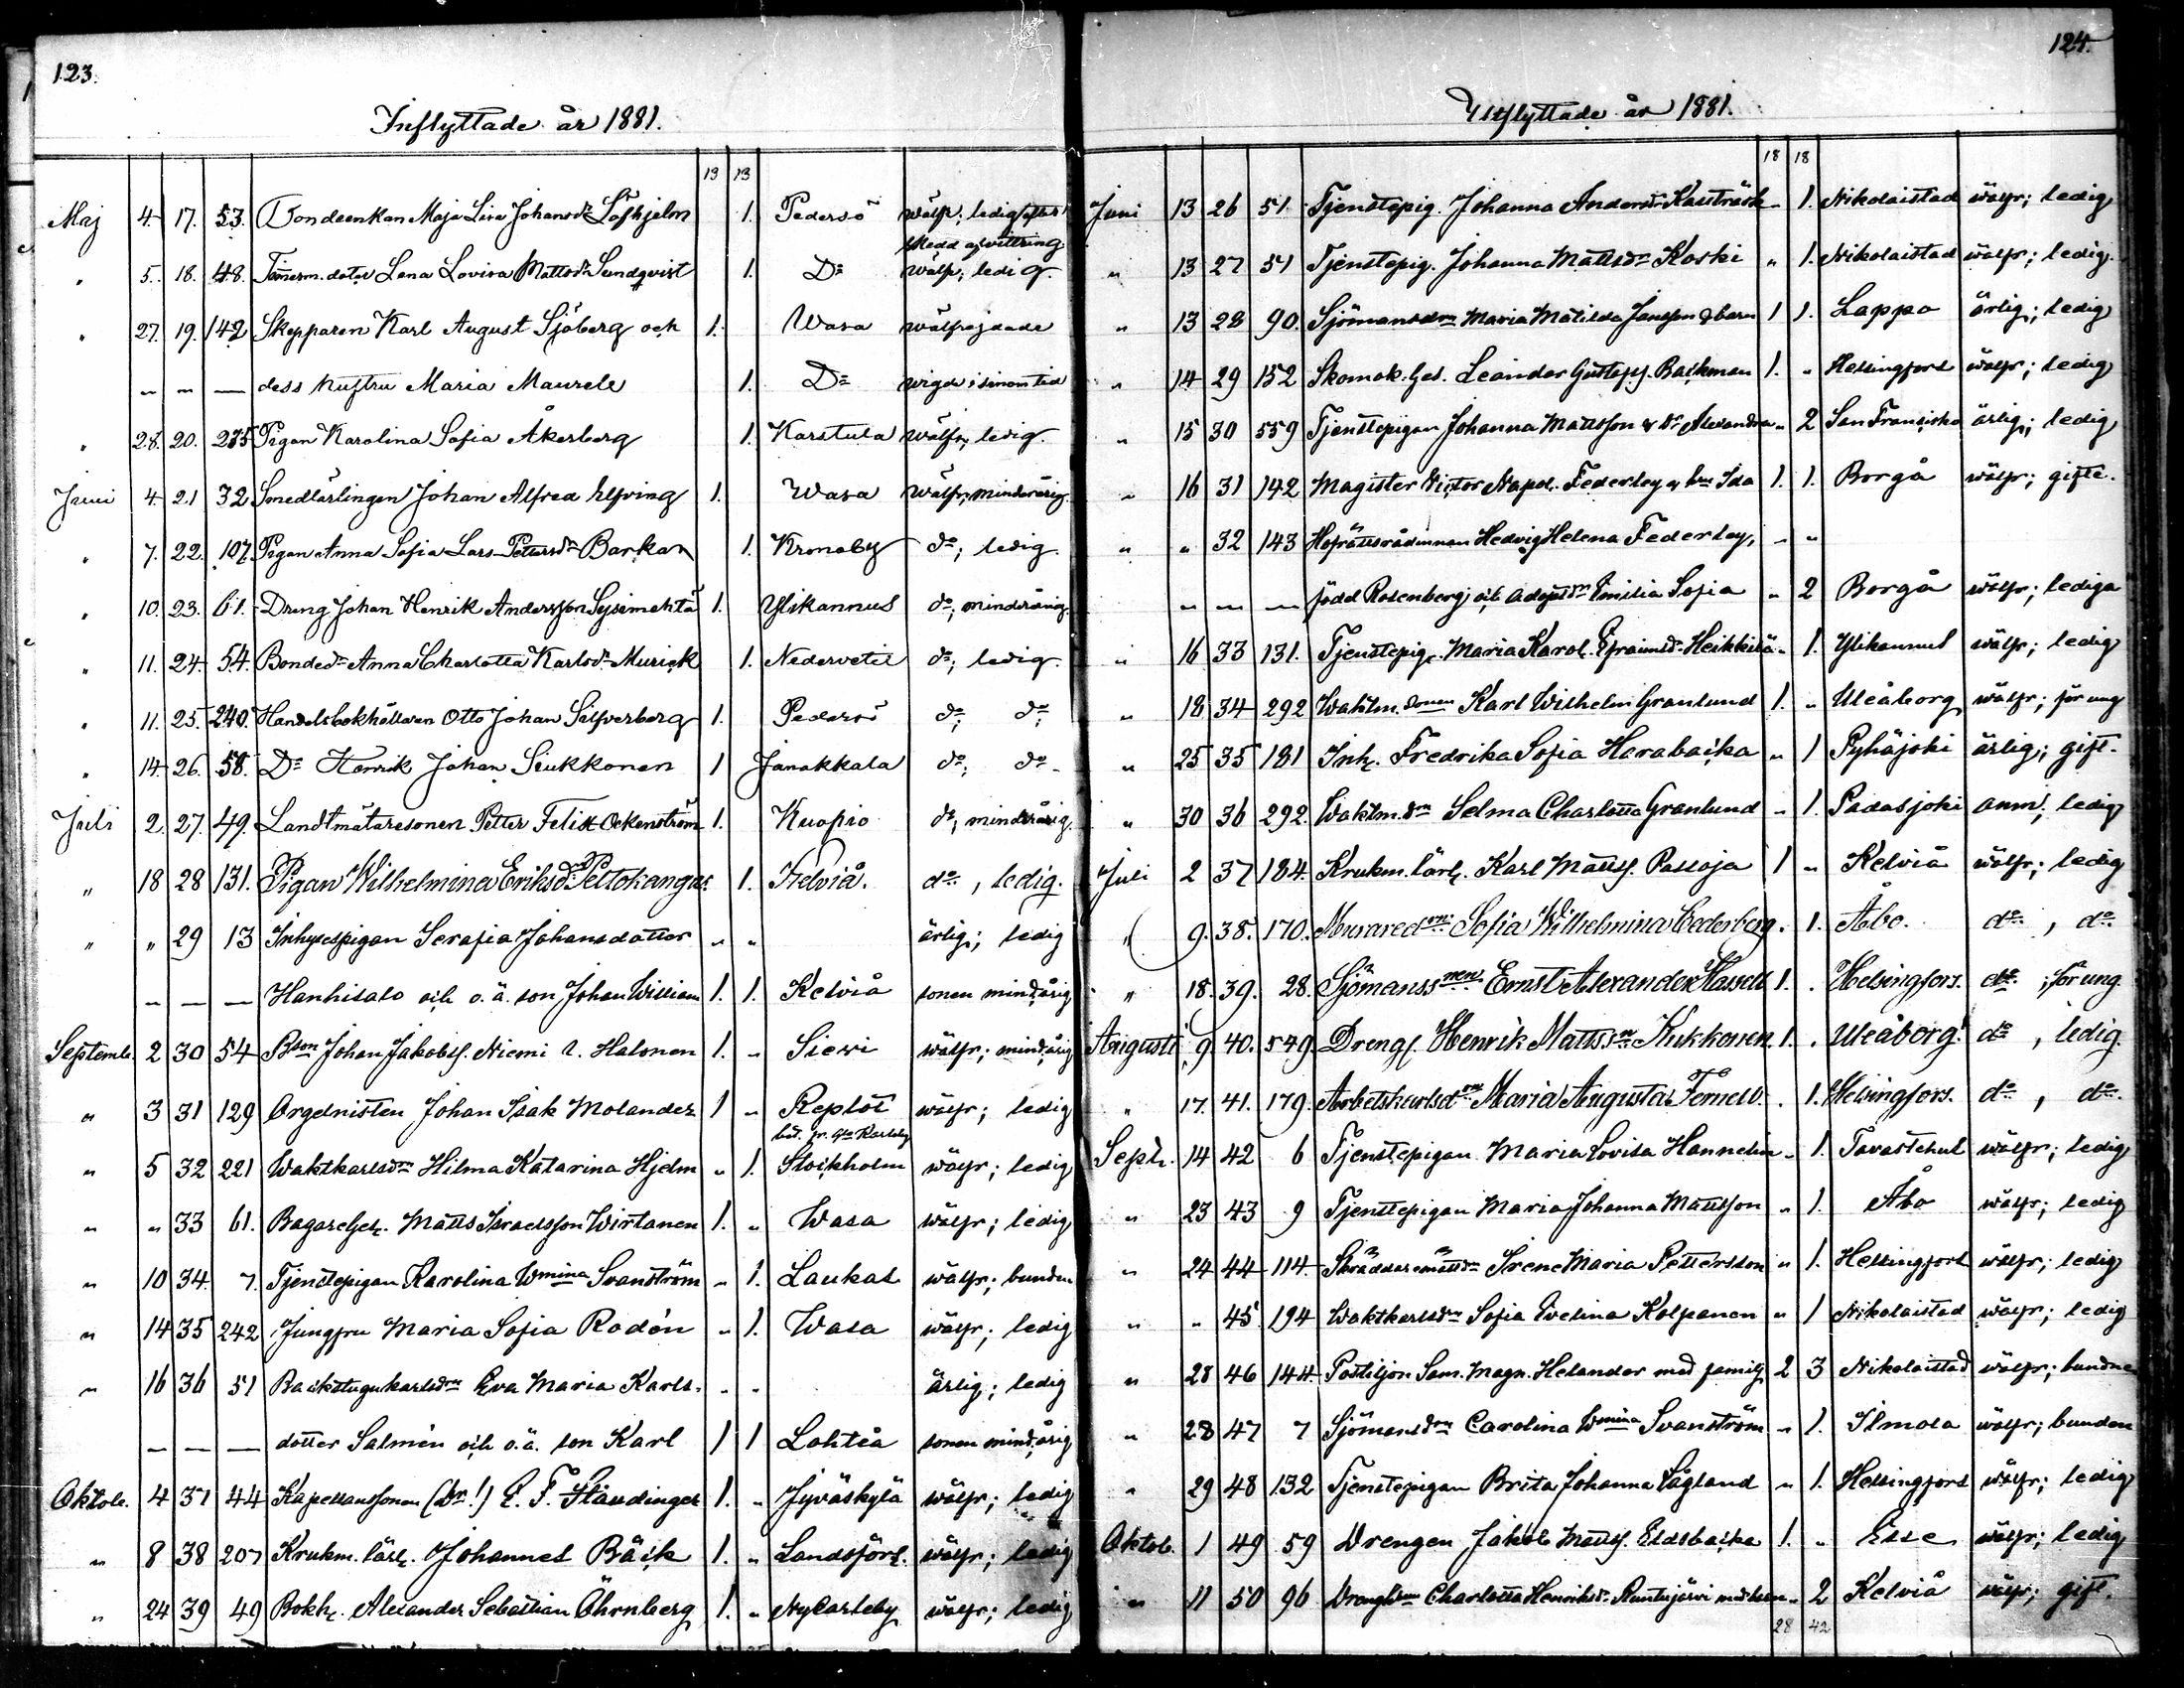 123.
Inflyttade år 1881.
13 13
Maj 4. 17. 53. Bondeenkan Maja Lisa Johansdr Löfhjelm 1. Pedersö wälfr; ledig efter
Medd afvittring
" 5. 18. 48. Timerm. dotter Lena Lovisa Mattsdr Sundqvist 1. Do wälfr; ledig.
" 27. 19. 142 Skepparen Karl August Sjöberg och 1. Wasa wälfrejdade
" " — dess hustru Maria Maurele 1. Do wigde i sinom tid
" 28. 20. 235 Pigan Karolina Sofia Åkerberg 1. Karstula wälfr; ledig.
Juni 4. 21 32 Smedlärlingen Johan Alfred Elfving 1. Wasa wälfr; minderårig.
" 7. 22. 107. Pigan Anna Sofia Lars Pettersdr Barkar 1. Kronoby do; ledig.
" 10. 23. 61. Dreng Johan Henrik Andersson Sysimehtä 1. Ylikannus do; minderårig.
" 11. 24. 54. Bondedr Anna Charlotta Karlsdr Murick 1. Nedervetil do; ledig.
" 11. 25. 240. Handelsbokhållaren Otto Johan Silfverberg 1. Pedersö do; do;
" 14. 26. 58. Do Henrik Johan Siukkonen 1 Janakkala do; do.
Juli 2. 27. 49. Landtmätaresonen Petter Felix Ockenström 1. Kuopio do; minderårig.
" 18 28 131. Pigan Wilhelmina Eriksdr Peltokangas 1. Kelviå. do, ledig.
" " 29 13 Inhysespigan Serafia Johansdotter " " ärlig; ledig
— — — Hanhisalo och o.ä. son Johan William 1. 1. Kelviå sonen mindårig
Septemb. 2 30 54 Bson Johan Jakobss. Niemi l. Halonen 1. " Siewi wälfr; mindårig
" 3 31 129 Orgelnisten Johan Isak Molander 1 " Replot wälfr; ledig
bet. fr. Gla Karleby
" 5 32 221 Waktkarlsdn Hilma Katarina Hjelm " 1. Stockholm wälfr; ledig
" " 33 61. Bagareges. Matts Israelsson Wirtanen 1. " Wasa wälfr; ledig
" 10 34 7. Tjenstepigan Karolina Wmina Svanström " 1. Laukas wälfr; bunden
" 14 35 242 Jungfru Maria Sofia Rodén " 1. Wasa wälfr; ledig
" 16 36 51 Backstugukarlsdn Eva Maria Karls- " " ärlig; ledig
— — — dotter Salmén och o.ä. son Karl 1 1 Lohteå sonen mindårig
Oktob. 4 37 44 Kapellanssonen (Dr!) E. F. Staudinger 1. " Jyväskylä wälfr; ledig
" 8 38 207 Krukm. lärl. Johannes Bäck 1. " Landsförs. wälfr; ledig
" 24 39 49 Bokh. Alexander Sebastian Öhrnberg 1. " Nycarleby wälfr; ledig
124.
Utflyttade år 1881.
18 18
Juni 13 26 51. Tjenstepig. Johanna Andersdr Kausträsk " 1. Nikolaistad wälfr; ledig
" 13 27 51 Tjenstepig. Johanna Mattsdr Koski " 1. Nikolaistad wälfr; ledig.
" 13 28 90. Sjömansdn Maria Matilda Jansson & barn 1 1. Lappo ärlig; ledig
" 14 29 152 Skomak. Ges. Leander Gustafss. Backman 1. " Helsingfors wälfr; ledig
" 15 30 559 Tjenstepigan Johanna Mattsson & dr Alexandra " 2 San Francisko ärlig; ledig
" 16 31 142 Magister Victor Napol. Federley & hu Ida 1. 1. Borgå wälfr; gifte.
" " 32 143 Hofrättsrådinnan Hedvig Helena Federley, " "
" — — född Rosenberg; och adoptdn Emilia Sofia " 2 Borgå wälfr; lediga
" 16 33 131. Tjenstepig. Maria Karol. Efraimsdr Heikkilä " 1. Ylikannus wälfr; ledig
" 18 34 292 Waktm. sonen Karl Wilhelm Granlund 1. " Uleåborg wälfr; för ung
" 25 35 181 Inh. Fredrika Sofia Harabacka " 1 Pyhäjoki ärlig; gift.
" 30 36 292. Waktm. dn Selma Charlotta Granlund " 1. Padasjoki anm; ledig
Juli 2 37 184. Krukm. lärl. Karl Mattss. Passoja 1 " Kelviå wälfr; ledig
" 9. 38. 170. Muraredn Sofia Wilhelmina Cederberg. 1. Åbo. do, do.
" 18. 39. 28. Sjömanssnen Ernst Alexander Hassell 1. . Helsingfors. do; för ung.
Augusti 9. 40. 549. Drengs. Henrik Mattssn Kukkonen. 1. . Uleåborg. do, ledig.
" 17. 41. 179. Arbetskarlsdn Maria Augusta Fernell. . 1. Helsingfors. do, do.
Septr. 14 42 6 Tjenstepigan Maria Lovisa Hannelin " 1. Tavastehus wälfr; ledig
" 23 43 9 Tjenstepigan Maria Johanna Mattsson " 1. Åbo wälfr; ledig
" 24 44 114. Skräddaremästdn Irene Maria Pettersson " 1. Helsingfors wälfr; ledig
" " 45 194 Waktkarlsdn Sofia Evelina Kolpanen " 1 Nikolaistad wälfr; ledig
" 28 46 144. Postiljon Sam. Magn. Helander med familj 2 3 Nikolaistad wälfr; bundne
" 28 47 7 Sjömansdn Carolina Wmina Svanström " 1. Ilmola wälfr; bunden
" 29 48 132 Tjenstepigan Brita Johanna Lågland " 1. Helsingfors wälfr; ledig
Oktob. 1 49 59 Drengen Jakob Mattss. Eldsbacka 1. " Esse wälfr; ledig
" 11 50 96 Charlotta Henriksdr med barn " 2 Kelviå wälfr; gift.
28 42